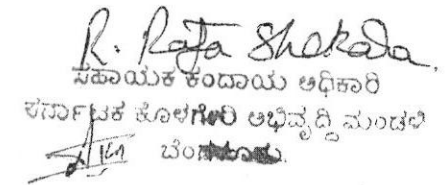 R. Raja Shekara.
ಸಹಾಯಕ ಕಂದಾಯ ಅಧಿಕಾರಿ
ಕರ್ನಾಟಕ ಕೊಳಗೇರಿ ಅಭಿವೃದ್ಧಿ ಮಂಡಳಿ
ಬೆಂಗಳೂರು.